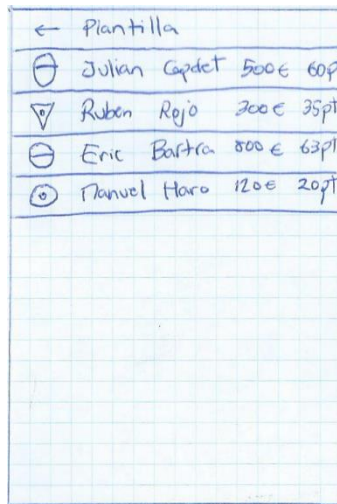 ← Plantilla
Julian Capdet 500€ 60pt
Ruben Rojo 300€ 35pt
Eric Bartra 800€ 63pt
Manuel Haro 120€ 20pt